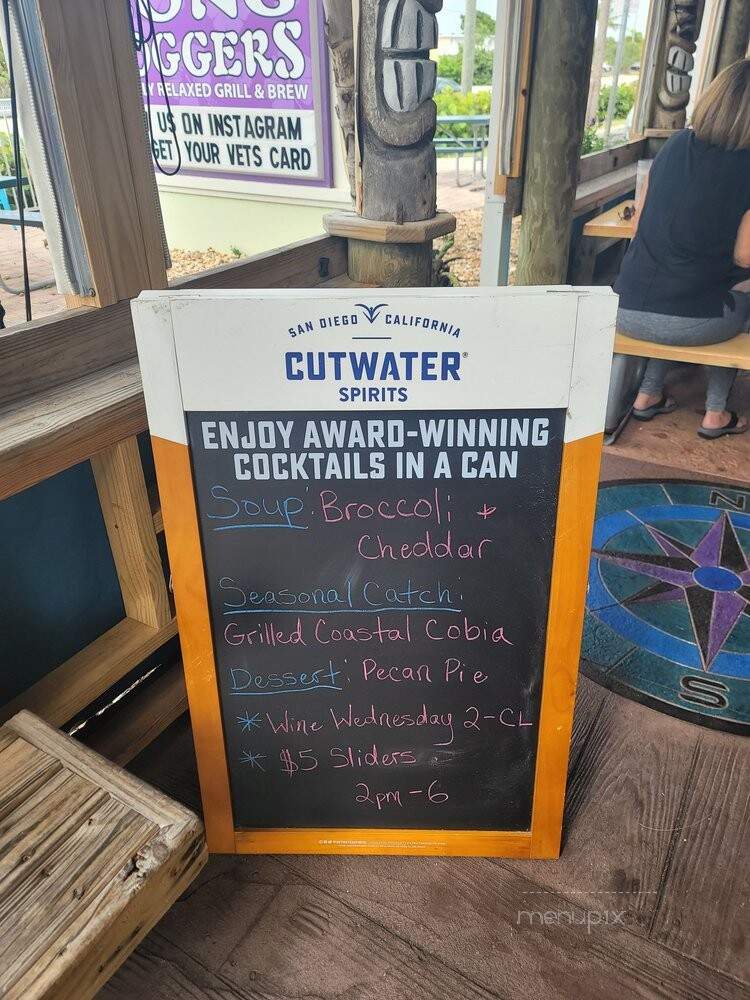 ONG
GGERS
Y RELAXED GRILL & BREW
US ON INSTAGRAM
GET YOUR VETS CARD
SAN DIEGO CALIFORNIA
CUTWATER®
SPIRITS
ENJOY AWARD-WINNING
COCKTAILS IN A CAN
Soup: Broccoli &
Cheddar
Seasonal Catch:
Grilled Coastal Cobia
Dessert: Pecan Pie
* Wine Wednesday 2-CL
* $5 Sliders
2pm-6
N
S
menupix